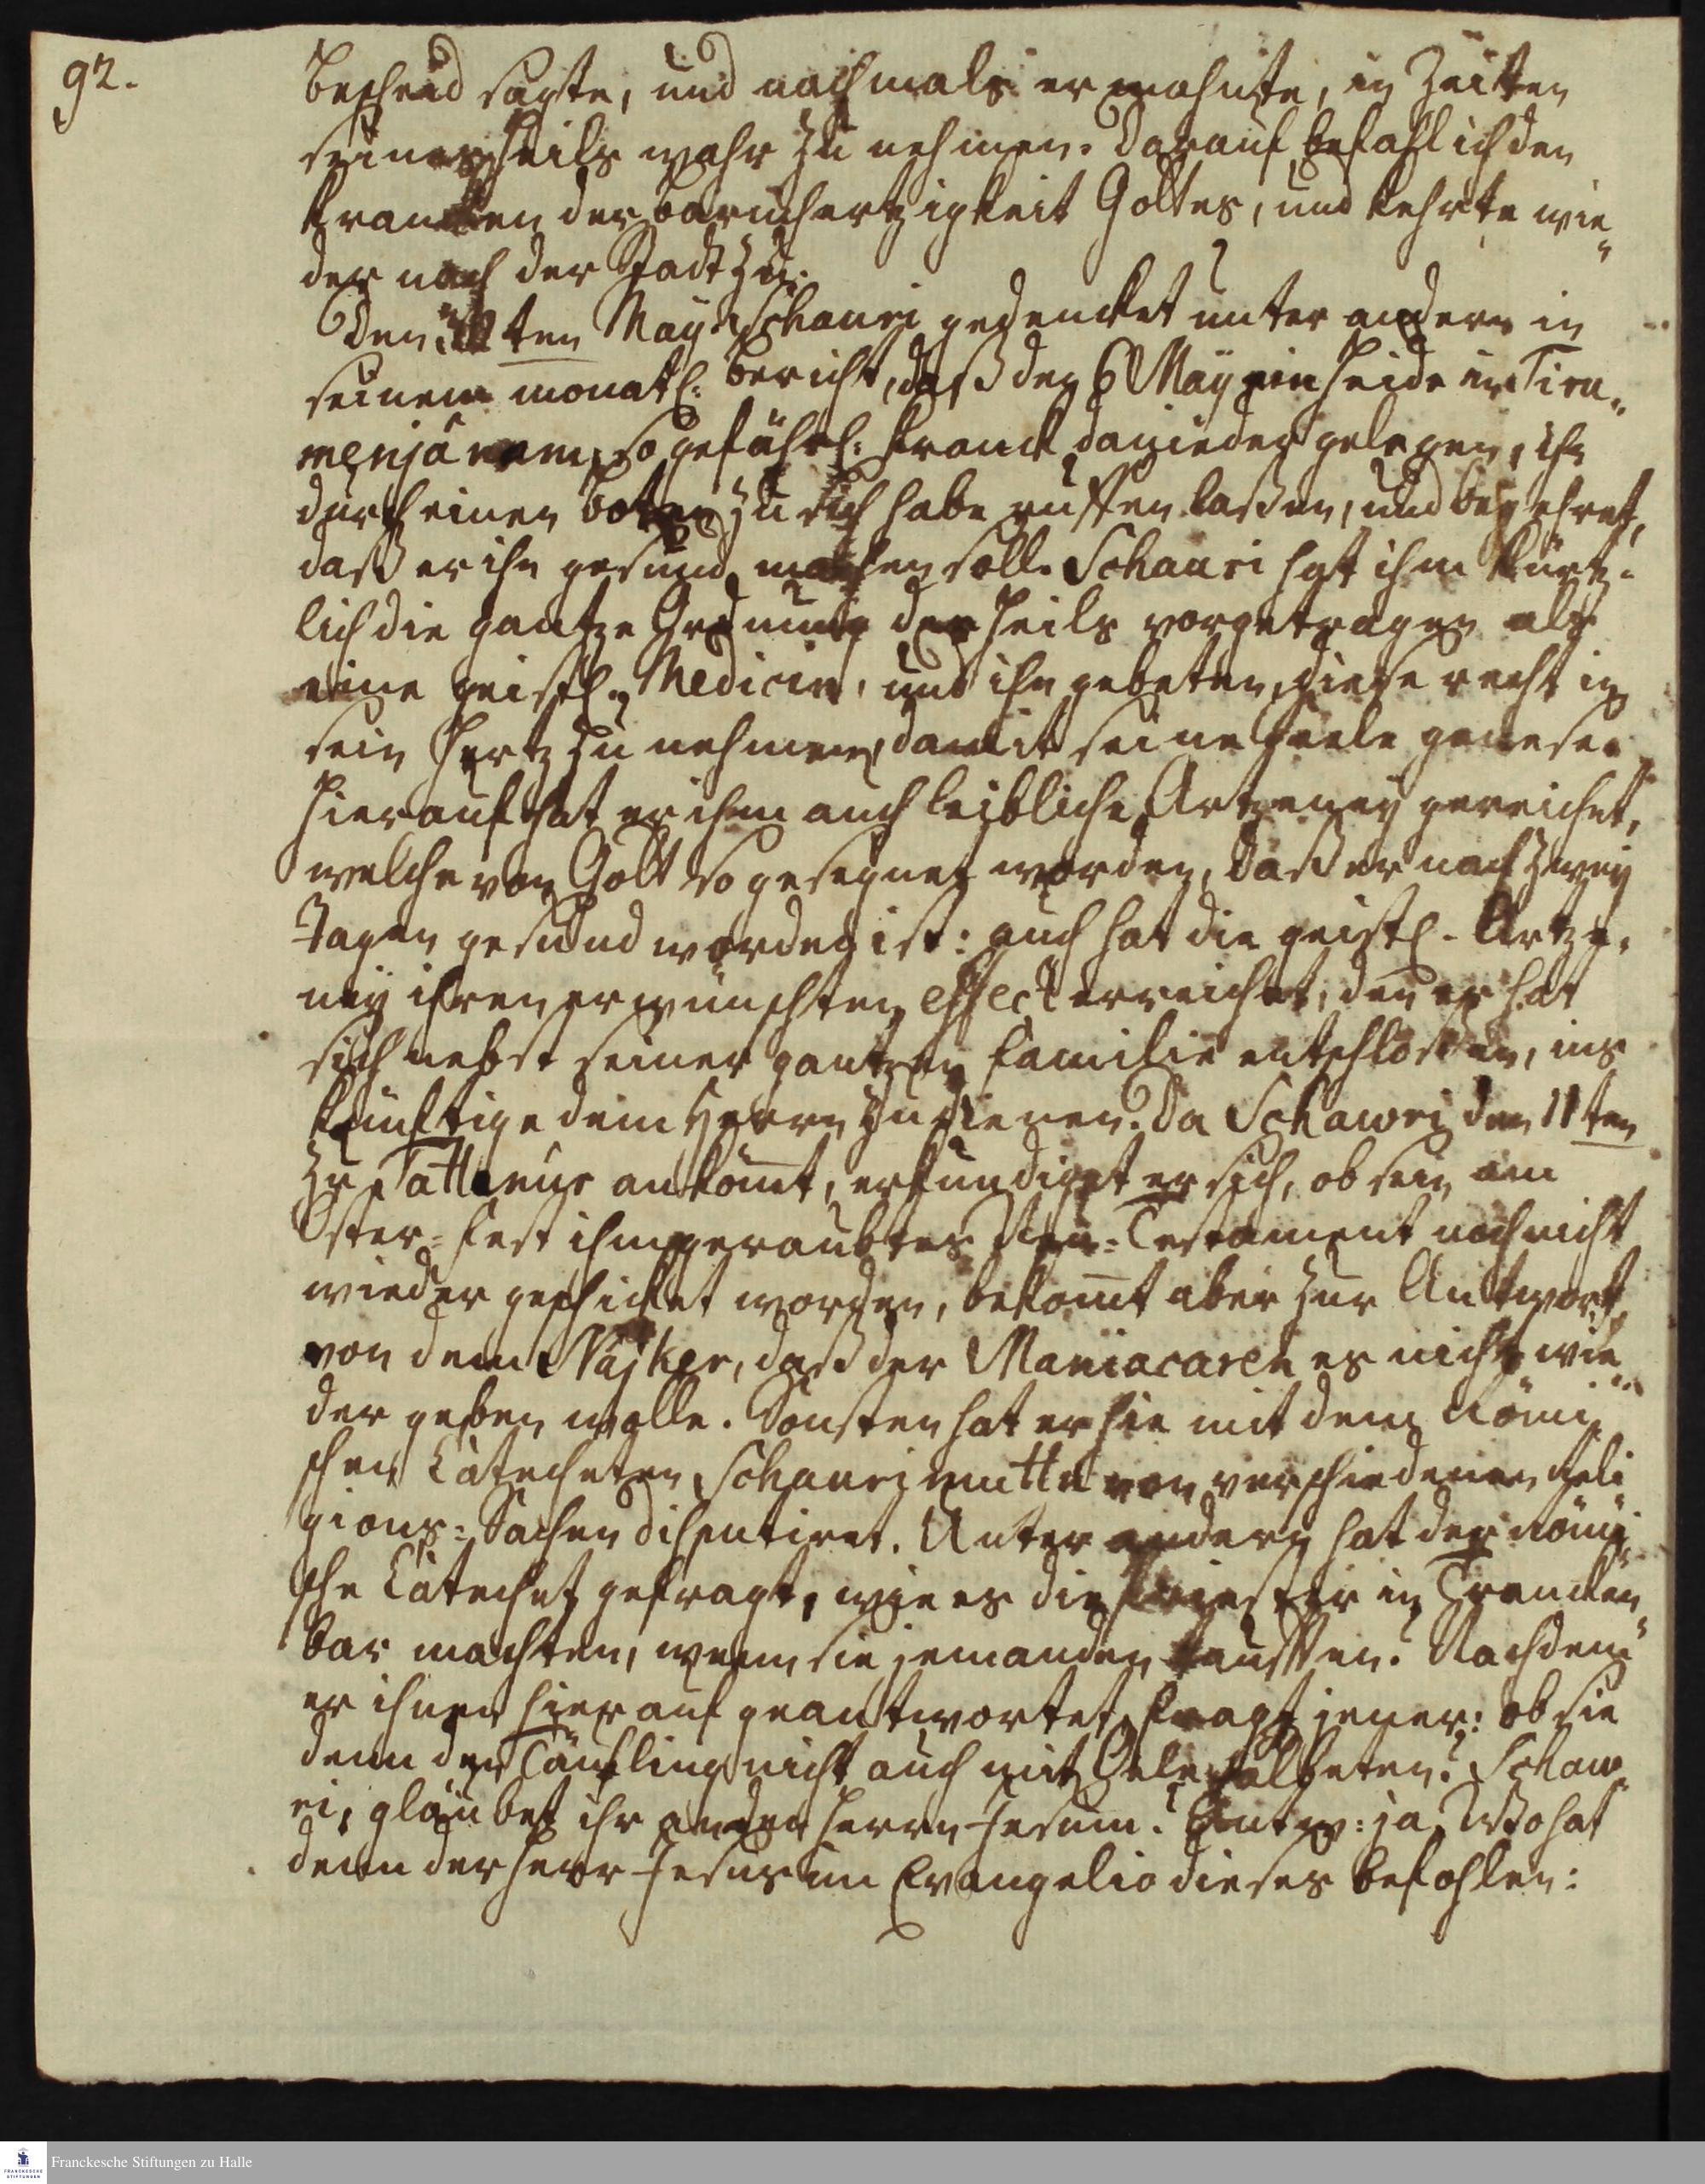 92.
Bescheid sagte, und nochmals ermahnte, in Zeiten
seines Heils wahr zu nehmen. Darauf befahl ich den
Krancken der Barmhertzigkeit Gottes, und kehrte wie„
der nach der Stadt zu.
Den ten May. Schauri gedencket unter andern in
seinem monatl: Bericht, daß den 6 May ein Heide in Tiru„
menjanam, so gefährl: kranck danieder gelegen, ihn
durch einen Boten zu sich habe ruffen laßen, und begehret,
daß er ihn gesund machen soll. Schauri hat ihm kürtz„
lich die gantze Ordnung des Heils vorgetragen als
eine geistl. Medicin, und ihn gebeten, diese recht in
sein Hertz zu nehmen, damit seine Seele genese.
Hierauf hat er ihm auch leibliche Artzeney gereichet,
welche von Gott so gesegnet worden, daß er nach zwey
Tagen gesund worden ist: auch hat die geistl. Artze„
ney ihren erwünschten effect erreichet, den er hat
sich nebst seiner gantzen Familie entschloßen, ins
künftige dem Herrn zu dienen. Da Schawri den 11ten
zu Tattanur ankomt, erkundiget er sich, ob sein am
Oster-Fest ihm geraubtes Neu-Testament noch nicht
wieder geschicket worden, bekomt aber zur Antwort
von dem Najker, daß der Maniacaren es nicht wie„
der geben wolle. Sonsten hat er hie mit dem Römi„
schen Catecheten Schauri muttu von verschiedenen Reli
gions-Sachen disputiret. Unter andern hat der Römi„
sche Catechet gefragt, wie es die Priester in Trancken„
bar machten, wenn sie jemanden tauften. Nachdem
er ihnen hierauf geantwortet, fragt jener: ob sie
denn den Täufling nicht auch mit Oele salbeten? Schaw„
ri, gläubet ihr an den Herrn Jesum? Antw: ja. Wo hat
denn der Herr Jesus im Evangelio dieses befohlen:
Franckesche Stiftungen zu Halle